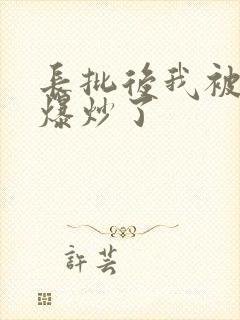 長批後我被
爆炒了
許芸